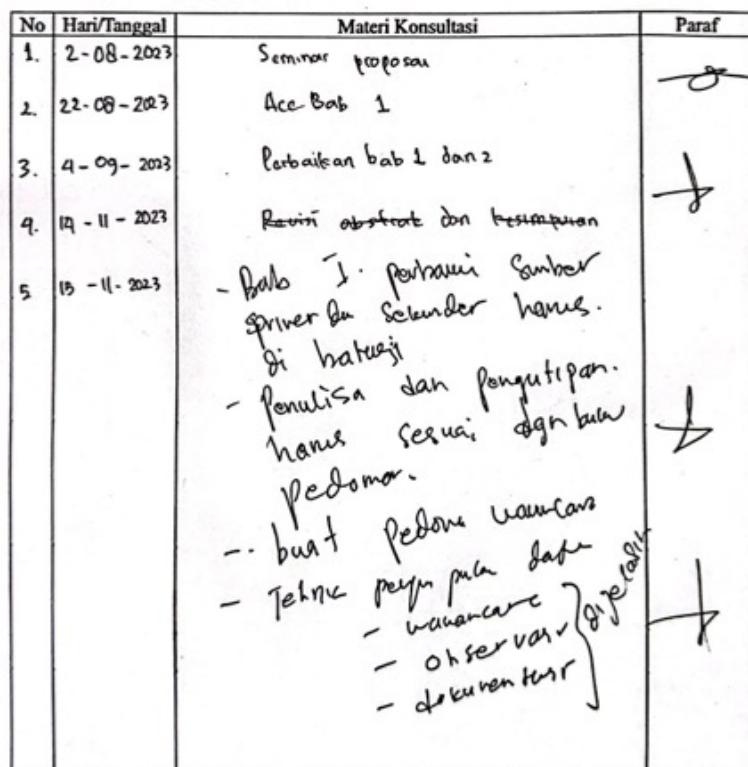 No Hari/Tanggal Materi Konsultasi Paraf
1. 2-08-2023 Seminar proposal
2. 22-08-2023 Acc Bab 1
3. 4-09-2023 Perbaikan bab 1 dan 2
4. 14-11-2023 Revisi abstrak dan kesimpulan
5 15-11-2023 - Bab I. perbaiki Sumber
primer dan Sekunder harus.
di
- Penulisa dan Pengutipan.
harus sesuai dgn buku
Pedoman.
-. buat Pedoma wawancara
- Teknik data
- wawancara
- observasi
- dokumentasi
dijelaskan